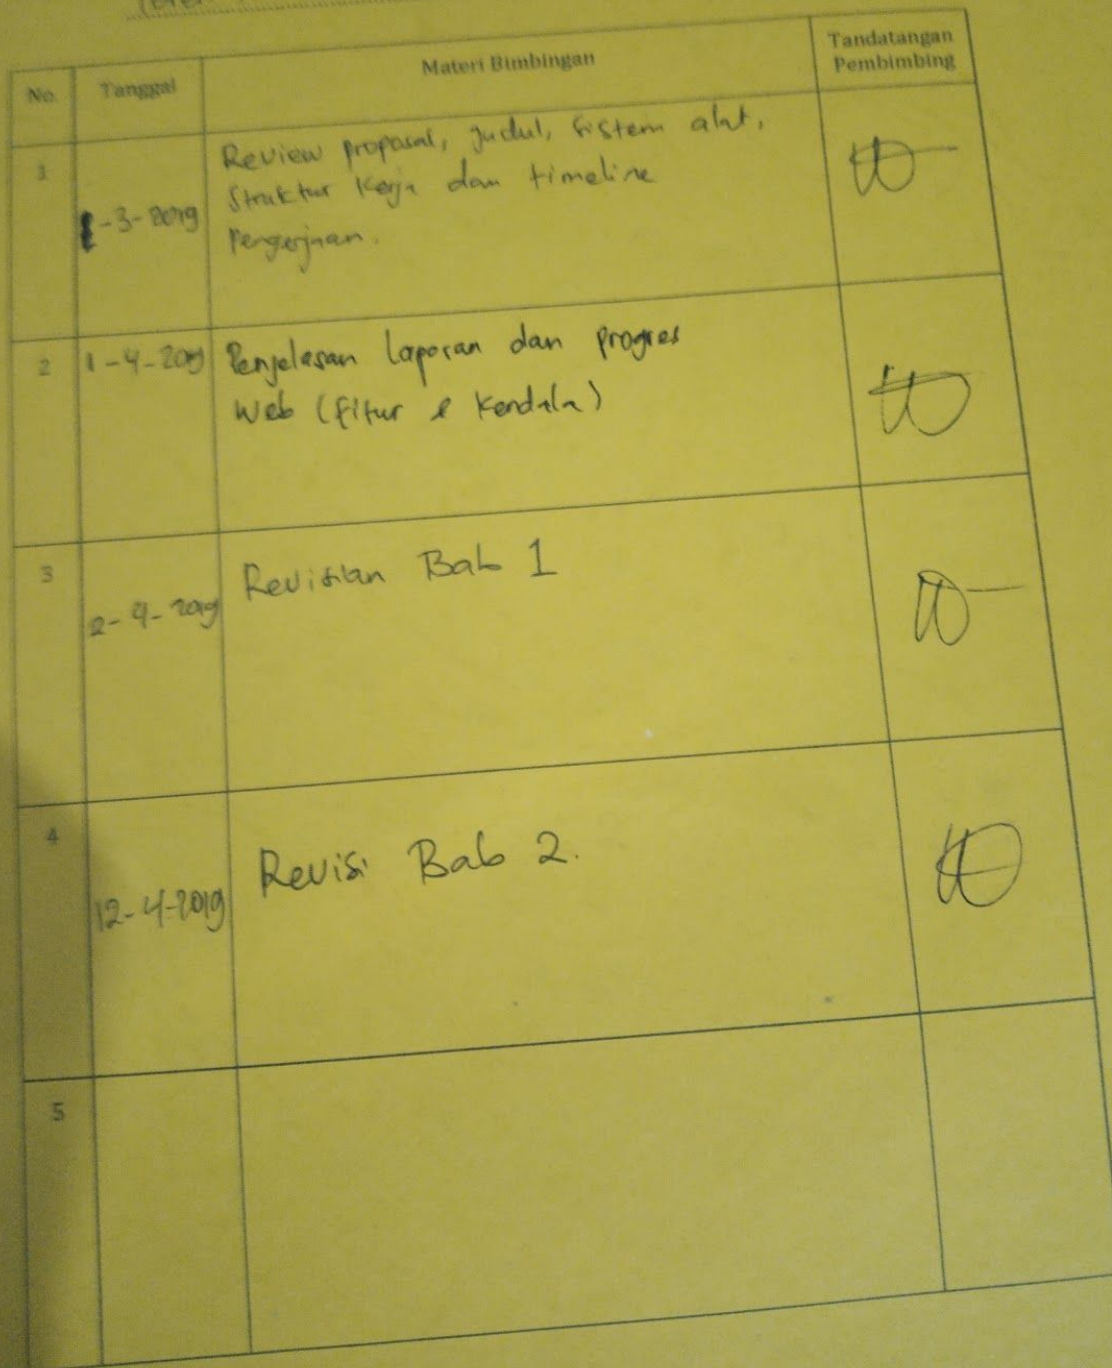 No. Tanggal Materi Bimbingan Tandatangan
Pembimbing
1 -3-2019 Review proposal, judul, sistem alat,
Struktur Kerja dan timeline
Pengerjaan.
2 1-4-2019 Penjelasan laporan dan progres
Web (fitur & Kendala)
3 2-4-2019 Revisian Bab 1
4 12-4-2019 Revisi Bab 2.
5